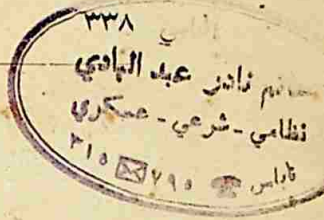 المحامي ٣٣٨
نادر عبد الهادي
نظامي - شرعي - عسكري
نابلس ☎ ٧٩٥ ✉ ٣١٥